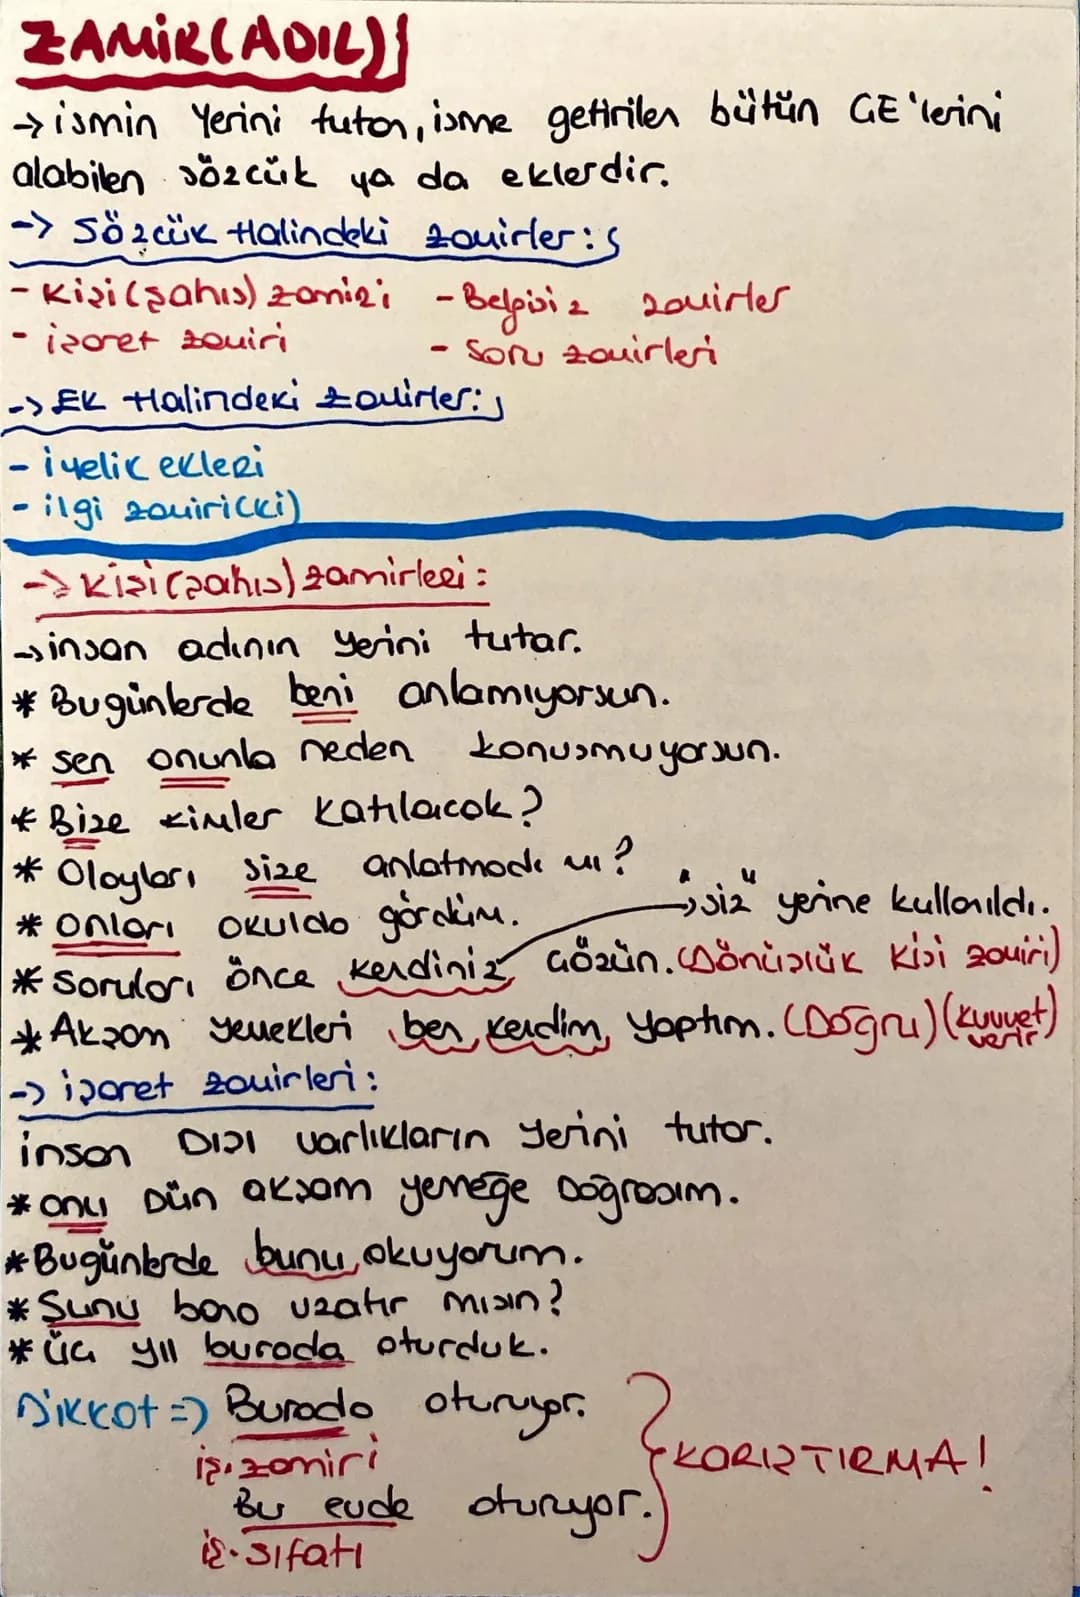 ZAMİR(ADIL)
→ ismin Yerini tutan, isme getirilen bütün ÇE'lerini
alabilen sözcük ya da eklerdir.
-> Sözcük Halindeki zamirler:
- Kişi (şahıs) zamiri - Belgisiz zamirler
- işaret zamiri - Soru zamirleri
-> EK Halindeki zamirler:
- iyelik ekleri
- ilgi zamiri(ki)
-> Kişi (şahıs) zamirleri:
→ insan adının Yerini tutar.
* Bugünlerde beni anlamıyorsun.
* sen onunla neden konuşmuyorsun.
* Bize kimler katılacak?
* Olayları size anlatmadı mı?
→ "siz" yerine kullanıldı.
* onları okulda gördüm.
* Soruları önce kendiniz çözün. (Dönüşlük Kişi zamiri)
* Akşam yemekleri ben kendim yaptım. (Doğru) (kuvvet verir)
-> işaret zamirleri:
insan Dışı varlıkların Yerini tutar.
* onu Dün akşam yemeğe Doğradım.
* Bugünlerde bunu okuyorum.
* Şunu bana uzatır mısın?
* üç yıl burada oturduk.
Dikkat => Burada oturuyor.
iş. zamiri
KARIŞTIRMA!
Bu evde oturuyor.
iş. sıfatı